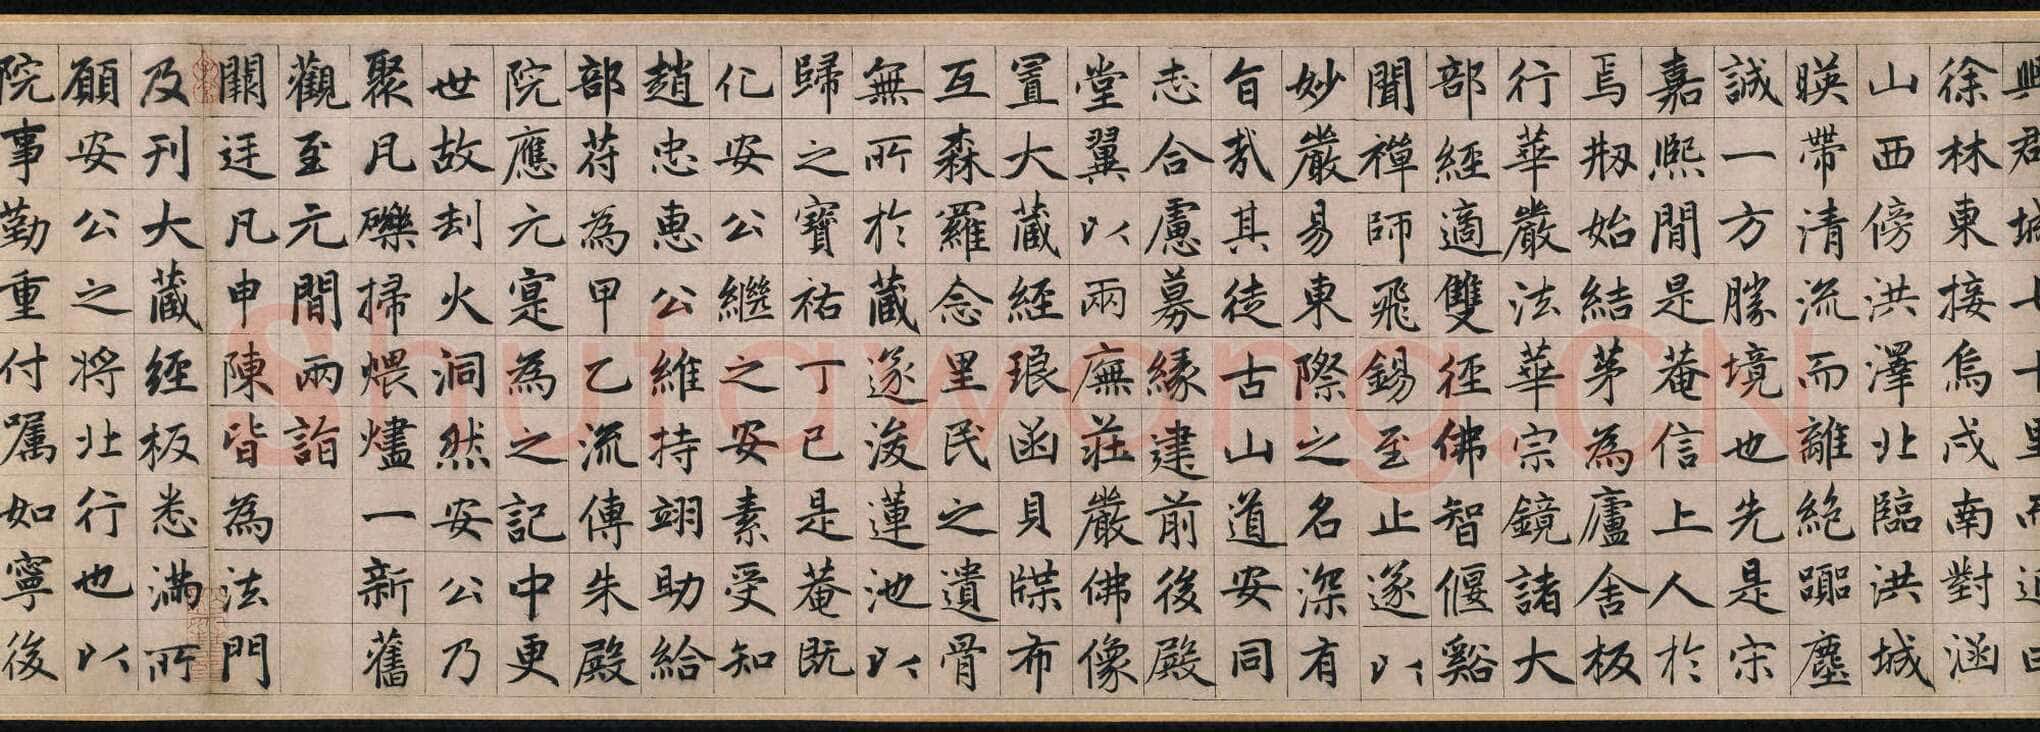 興郡城七十里而近曰
徐林東接烏戍南對涵
山西傍洪澤北臨洪城
暎帶清流而離絕嚻塵
誠一方勝境也先是宋
嘉熙間是菴信上人於
焉刱始結茅為廬舍板
行華嚴法華宗鏡諸大
部經適雙徑佛智偃谿
聞禪師飛錫至止遂以
妙嚴易東際之名深有
旨哉其徒古山道安同
志合慮募緣建前後殿
堂翼以兩廡莊嚴佛像
置大藏經琅函貝牒布
互森羅念里民之遺骨
無所於藏遂浚蓮池以
歸之寶祐丁巳是菴既
化安公繼之安素受知
趙忠惠公維持翊助給
部苻為甲乙流傳朱殿
院應元寔為之記中更
世故刦火洞然安公乃
聚凡礫掃煨燼一新舊
觀至元間兩詣
闕廷凡申陳皆為法門
及刊大藏經板悉滿所
願安公之將北行也以
院事勤重付囑如寧後
Shufawang.CN